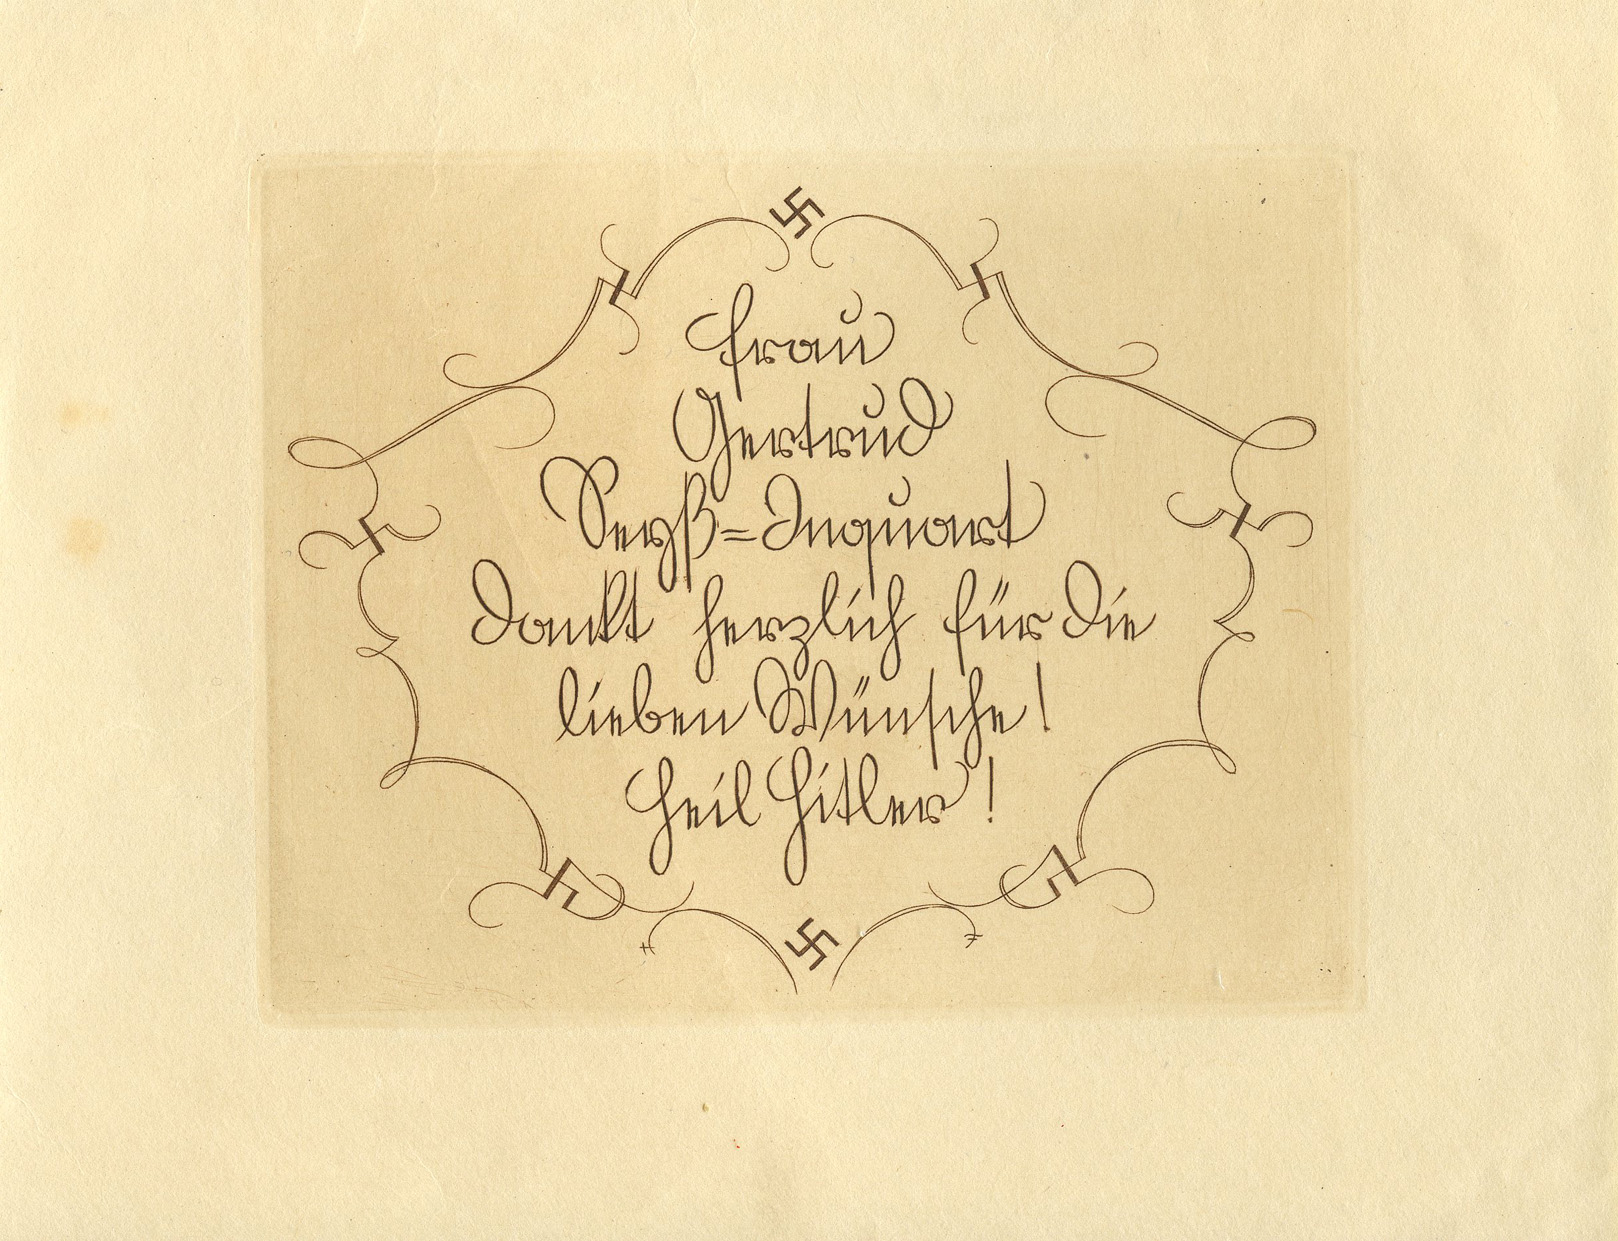 Frau
Gertrud
Seyß=Inquart
dankt herzlich für die
lieben Wünsche!
Heil Hitler!